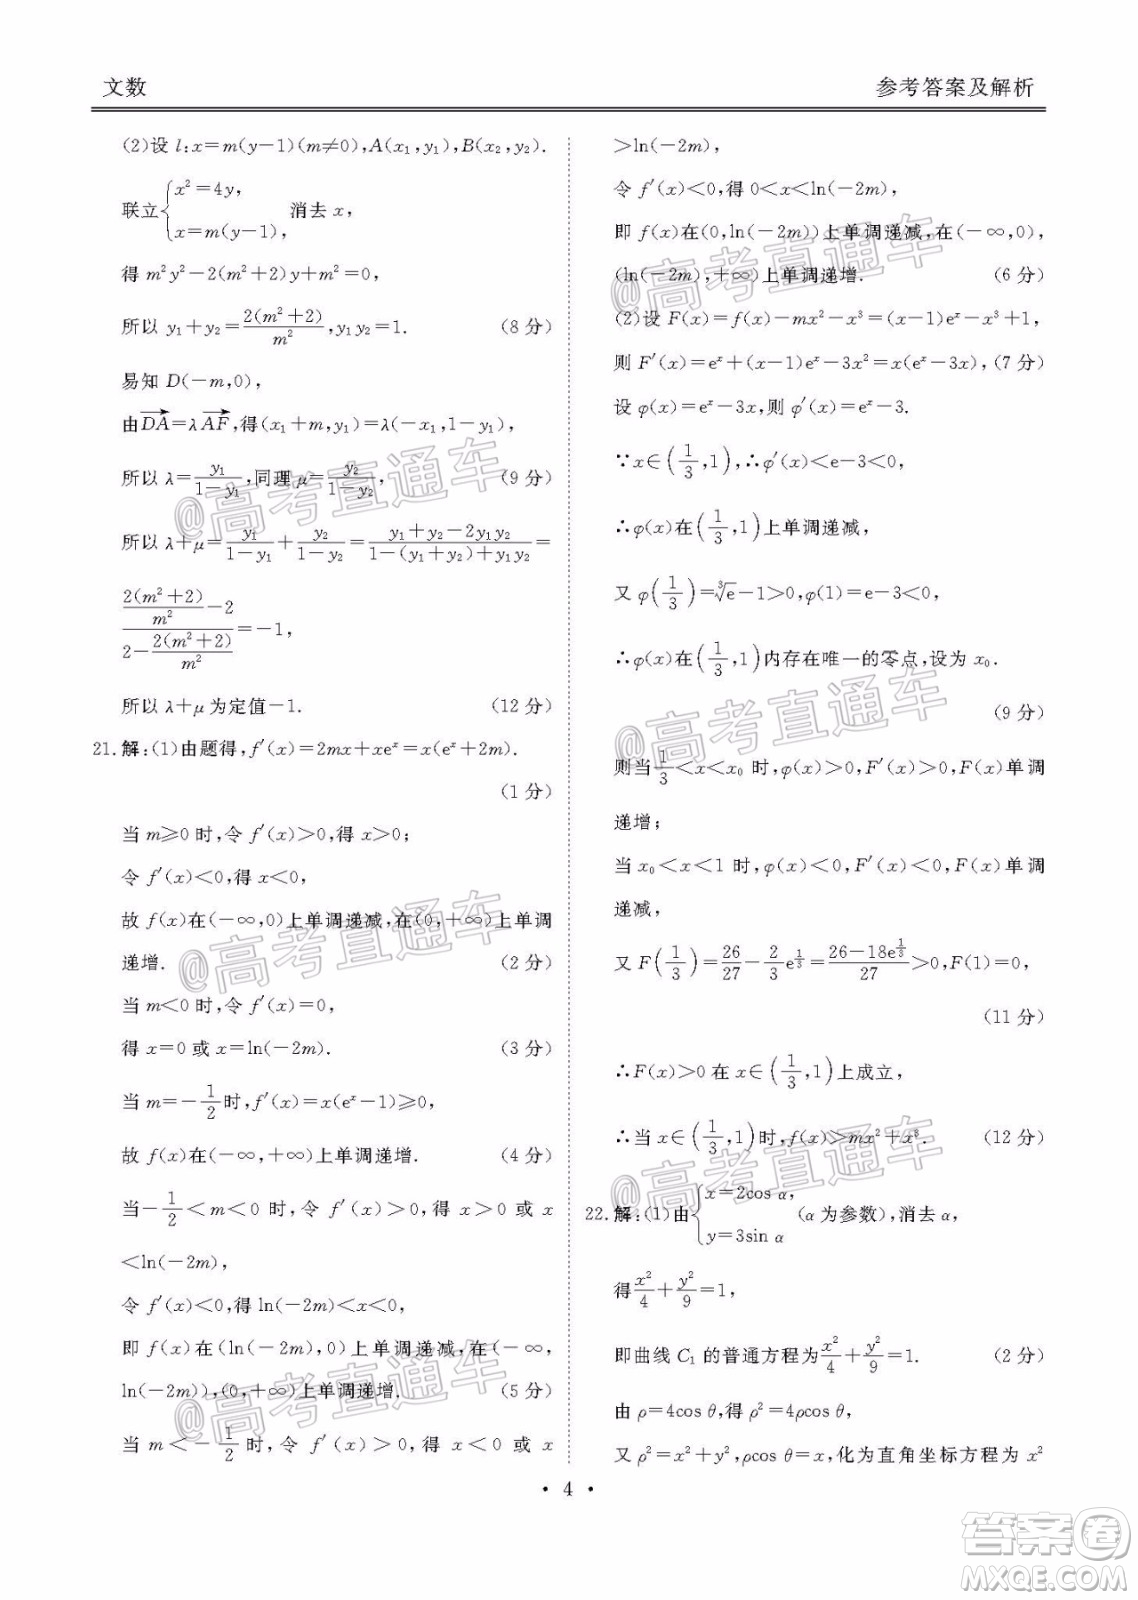 文数
参考答案及解析
(2)设 l:x=m(y-1)(m≠0),A(x₁,y₁),B(x₂,y₂).
联立{x²=4y, x=m(y-1), 消去 x,
得 m²y²-2(m²+2)y+m²=0,
所以 y₁+y₂=2(m²+2)/m²,y₁y₂=1. (8 分)
易知 D(-m,0),
由DA→=λAF→,得(x₁+m,y₁)=λ(-x₁,1-y₁),
所以 λ=y₁/(1-y₁),同理 μ=y₂/(1-y₂), (9 分)
所以 λ+μ=y₁/(1-y₁)+y₂/(1-y₂)=(y₁+y₂-2y₁y₂)/(1-(y₁+y₂)+y₁y₂)=
(2(m²+2)/m²-2)/(2-2(m²+2)/m²)=-1,
所以 λ+μ 为定值-1. (12 分)
21.解:(1)由题得,f′(x)=2mx+xeˣ=x(eˣ+2m).
(1 分)
当 m≥0 时,令 f′(x)>0,得 x>0;
令 f′(x)<0,得 x<0,
故 f(x)在(-∞,0)上单调递减,在(0,+∞)上单调
递增. (2 分)
当 m<0 时,令 f′(x)=0,
得 x=0 或 x=ln(-2m). (3 分)
当 m=-1/2时,f′(x)=x(eˣ-1)≥0,
故 f(x)在(-∞,+∞)上单调递增. (4 分)
当-1/2<m<0 时,令 f′(x)>0,得 x>0 或 x
<ln(-2m),
令 f′(x)<0,得 ln(-2m)<x<0,
即 f(x)在(ln(-2m),0)上单调递减,在(-∞,
ln(-2m)),(0,+∞)上单调递增. (5 分)
当 m<-1/2 时,令 f′(x)>0,得 x<0 或 x
>ln(-2m),
令 f′(x)<0,得 0<x<ln(-2m),
即 f(x)在(0,ln(-2m))上单调递减,在(-∞,0),
(ln(-2m),+∞)上单调递增. (6 分)
(2)设 F(x)=f(x)-mx²-x³=(x-1)eˣ-x³+1,
则 F′(x)=eˣ+(x-1)eˣ-3x²=x(eˣ-3x),(7 分)
设 φ(x)=eˣ-3x,则 φ′(x)=eˣ-3.
∵x∈(1/3,1),∴φ′(x)<e-3<0,
∴φ(x)在(1/3,1)上单调递减,
又 φ(1/3)=∛e-1>0,φ(1)=e-3<0,
∴φ(x)在(1/3,1)内存在唯一的零点,设为 x₀.
(9 分)
则当1/3<x<x₀ 时,φ(x)>0,F′(x)>0,F(x)单调
递增;
当 x₀<x<1 时,φ(x)<0,F′(x)<0,F(x)单调
递减,
又 F(1/3)=26/27-2/3e^(1/3)=(26-18e^(1/3))/27>0,F(1)=0,
(11 分)
∴F(x)>0 在 x∈(1/3,1)上成立,
∴当 x∈(1/3,1)时,f(x)>mx²+x³. (12 分)
22.解:(1)由{x=2cos α, y=3sin α (α 为参数),消去 α,
得x²/4+y²/9=1,
即曲线 C₁ 的普通方程为x²/4+y²/9=1. (2 分)
由 ρ=4cos θ,得 ρ²=4ρcos θ,
又 ρ²=x²+y²,ρcos θ=x,化为直角坐标方程为 x²
• 4 •
@高考直通车
@高考直通车
@高考直通车
@高考直通车
@高考直通车
@高考直通车
答案卷
MXQE.COM